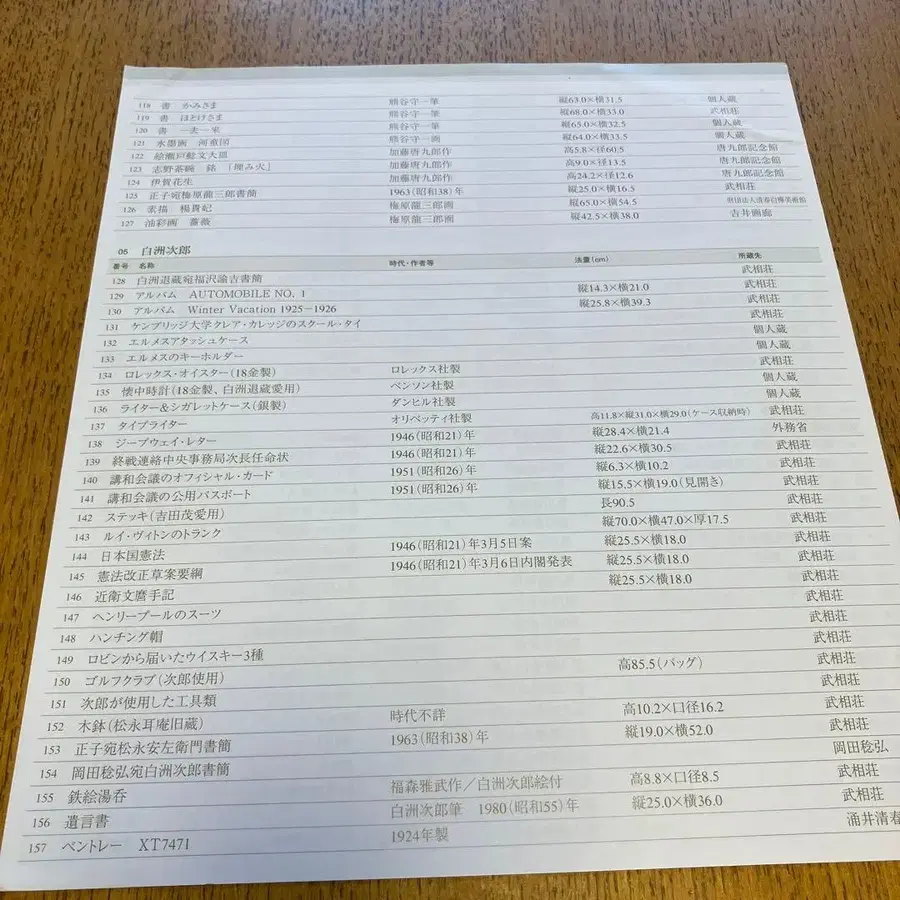 118 書 かみさま 熊谷守一筆 縦63.0×横31.5 個人蔵
119 書 ほとけさま 熊谷守一筆 縦68.0×横33.0 武相荘
120 書 一去一来 熊谷守一筆 縦65.0×横32.5 個人蔵
121 水墨画 河童図 熊谷守一画 縦64.0×横33.5 個人蔵
122 絵瀬戸鮫文大皿 加藤唐九郎作 高5.8×径60.5 唐九郎記念館
123 志野茶碗 銘 「埋み火」 加藤唐九郎作 高9.0×径13.5 唐九郎記念館
124 伊賀花生 加藤唐九郎作 高24.2×径12.6 唐九郎記念館
125 正子宛梅原龍三郎書簡 1963(昭和38)年 縦25.0×横16.5 武相荘
126 素描 楊貴妃 梅原龍三郎画 縦65.0×横54.5 財団法人清春白樺美術館
127 油彩画 薔薇 梅原龍三郎画 縦42.5×横38.0 吉井画廊
05 白洲次郎
番号 名称 時代・作者等 法量(cm) 所蔵先
128 白洲退蔵宛福沢諭吉書簡 武相荘
129 アルバム AUTOMOBILE NO. 1 縦14.3×横21.0 武相荘
130 アルバム Winter Vacation 1925−1926 縦25.8×横39.3 武相荘
131 ケンブリッジ大学クレア・カレッジのスクール・タイ 武相荘
132 エルメスアタッシュケース 個人蔵
133 エルメスのキーホルダー 個人蔵
134 ロレックス・オイスター(18金製) ロレックス社製 武相荘
135 懐中時計(18金製、白洲退蔵愛用) ベンソン社製 個人蔵
136 ライター&シガレットケース(銀製) ダンヒル社製 個人蔵
137 タイプライター オリベッティ社製 高11.8×縦31.0×横29.0(ケース収納時) 武相荘
138 ジープウェイ・レター 1946(昭和21)年 縦28.4×横21.4 外務省
139 終戦連絡中央事務局次長任命状 1946(昭和21)年 縦22.6×横30.5 武相荘
140 講和会議のオフィシャル・カード 1951(昭和26)年 縦6.3×横10.2 武相荘
141 講和会議の公用パスポート 1951(昭和26)年 縦15.5×横19.0(見開き) 武相荘
142 ステッキ(吉田茂愛用) 長90.5 武相荘
143 ルイ・ヴィトンのトランク 縦70.0×横47.0×厚17.5 武相荘
144 日本国憲法 1946(昭和21)年3月5日案 縦25.5×横18.0 武相荘
145 憲法改正草案要綱 1946(昭和21)年3月6日内閣発表 縦25.5×横18.0 武相荘
146 近衛文麿手記 縦25.5×横18.0 武相荘
147 ヘンリープールのスーツ 武相荘
148 ハンチング帽 武相荘
149 ロビンから届いたウイスキー3種 武相荘
150 ゴルフクラブ(次郎使用) 高85.5(バッグ) 武相荘
151 次郎が使用した工具類 武相荘
152 木鉢(松永耳庵旧蔵) 時代不詳 高10.2×口径16.2 武相荘
153 正子宛松永安左衛門書簡 1963(昭和38)年 縦19.0×横52.0 武相荘
154 岡田稔弘宛白洲次郎書簡 岡田稔弘
155 鉄絵湯呑 福森雅武作/白洲次郎絵付 高8.8×口径8.5 武相荘
156 遺言書 白洲次郎筆 1980(昭和55)年 縦25.0×横36.0 武相荘
157 ベントレー XT7471 1924年製 涌井清春